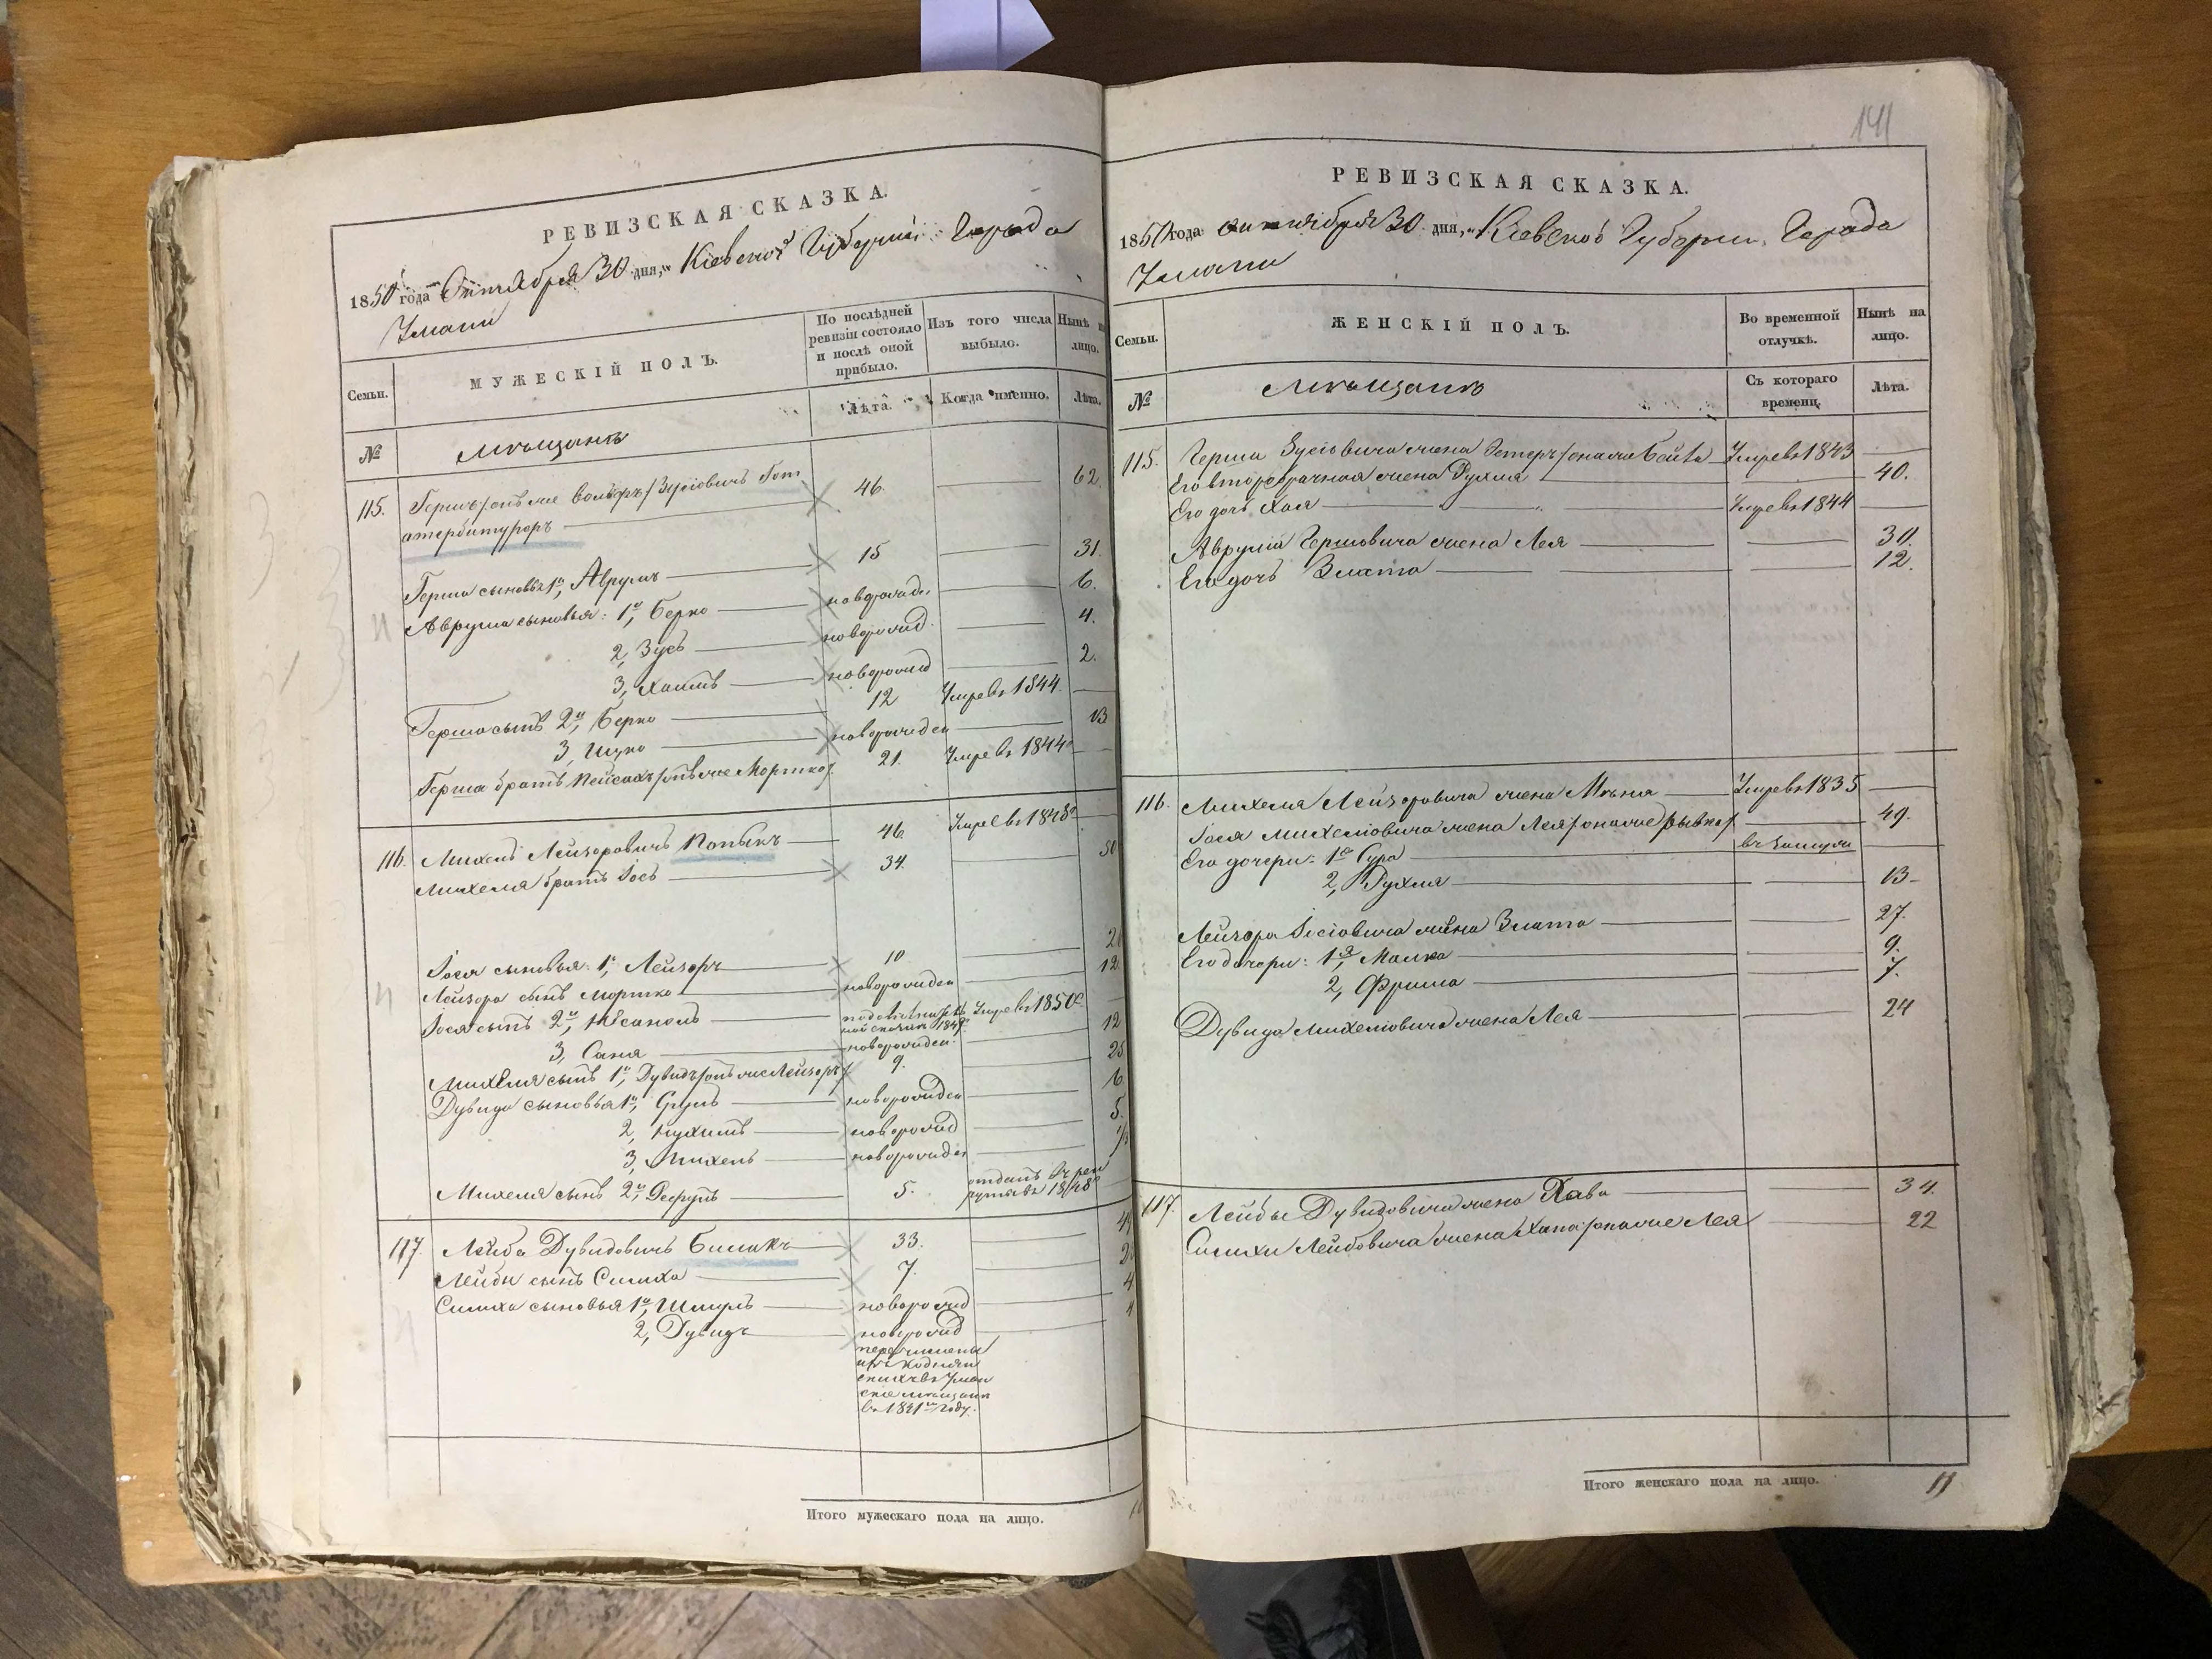 РЕВИЗСКАЯ СКАЗКА.
1850 года Октября 30 дня, Кіевской Губерніи Города
Умани
Семьи.
МУЖЕСКІЙ ПОЛЪ.
По послѣдней ревизіи состояло и послѣ оной прибыло.
Изъ того числа выбыло.
Нынѣ на лицо.
Лѣта.
Когда именно.
Лѣта.
№
Мѣщане
115. Гершъ/онъ же Вольфъ/Зусіовичъ 46. 62.
Герша сыновья 1й, Аврумъ 15 31.
Аврума сыновья: 1й Берко новорожд. 6.
2, Зусь новорожд. 4.
3, Хаимъ новорожд 2.
Герша сынъ 2й, Берко 12 Умре въ 1844.
3, Ицко новорожден 13
Герша братъ Пейсахъ/онъ же Мортко/. 21. Умре въ 1844
116. Михель Лейзоровичъ Копыкъ 46. Умре въ 1848
Михеля братъ Іось 34. 50
Іося сыновья: 1, Лейзоръ 10 2
Лейзора сынъ Мортко новорожден 12.
Іося сынъ 2й, Умре въ 1850
3, Саня новорожден. 12
Михеля сынъ 1й, Дувидъ/онъ же Лейзоръ/ 9. 25
Дувида сыновья 1й, Сруль новорожден 6
2, Нухимъ новорожд 5.
3, Михель новорожден
Михеля сынъ 2й, 5. отданъ въ рекруты въ 1848
117. Лейба Дувидовичъ Бимакъ 33. 4
Лейбы сынъ Симха 7. 2
Симха сыновья 1й, Шмуль новорожд 4
2, Дувидъ новорожд
перечислены
въ 1841м году.
Итого мужескаго пола на лицо.
141
РЕВИЗСКАЯ СКАЗКА.
1850 года октября 30 дня, Кіевской Губерніи, Города
Умани
Семьи.
ЖЕНСКІЙ ПОЛЪ.
Во временной отлучкѣ.
Нынѣ на лицо.
№
Мѣщане
Съ котораго времени.
Лѣта.
115. Герша Зусіовича жена Эстеръ/она же Бейла Умре въ 1843
Его второбрачная жена Рухля 40.
Его дочь Хая Умре въ 1844
Аврума Гершовича жена Лея 30.
Его дочь Злата 12.
116. Михеля Лейзоровича жена Умре въ 1835
Іося Михеліовича жена Лея/она же Рывка/ 49.
Его дочери: 1я Сура въ замуж
2, Рухля 13
Лейзора Іосіовича жена Злата 27.
Его дочери: 1я, Малка 9.
2, Фрима 7.
Дувида Михеліовича жена Лея 24
117. Лейбы Дувидовича жена Хава 34.
Симхи Лейбовича жена Хана/она же Лея 22
Итого женскаго пола на лицо. 11